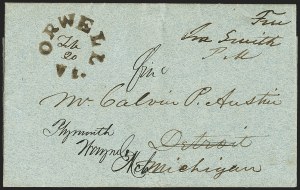 ORWELL
Vt.
Feb
20
Free
Smith
P.M
Mr. Calvin P. Austin
Detroit
Michigan
Plymouth
Wayne Co